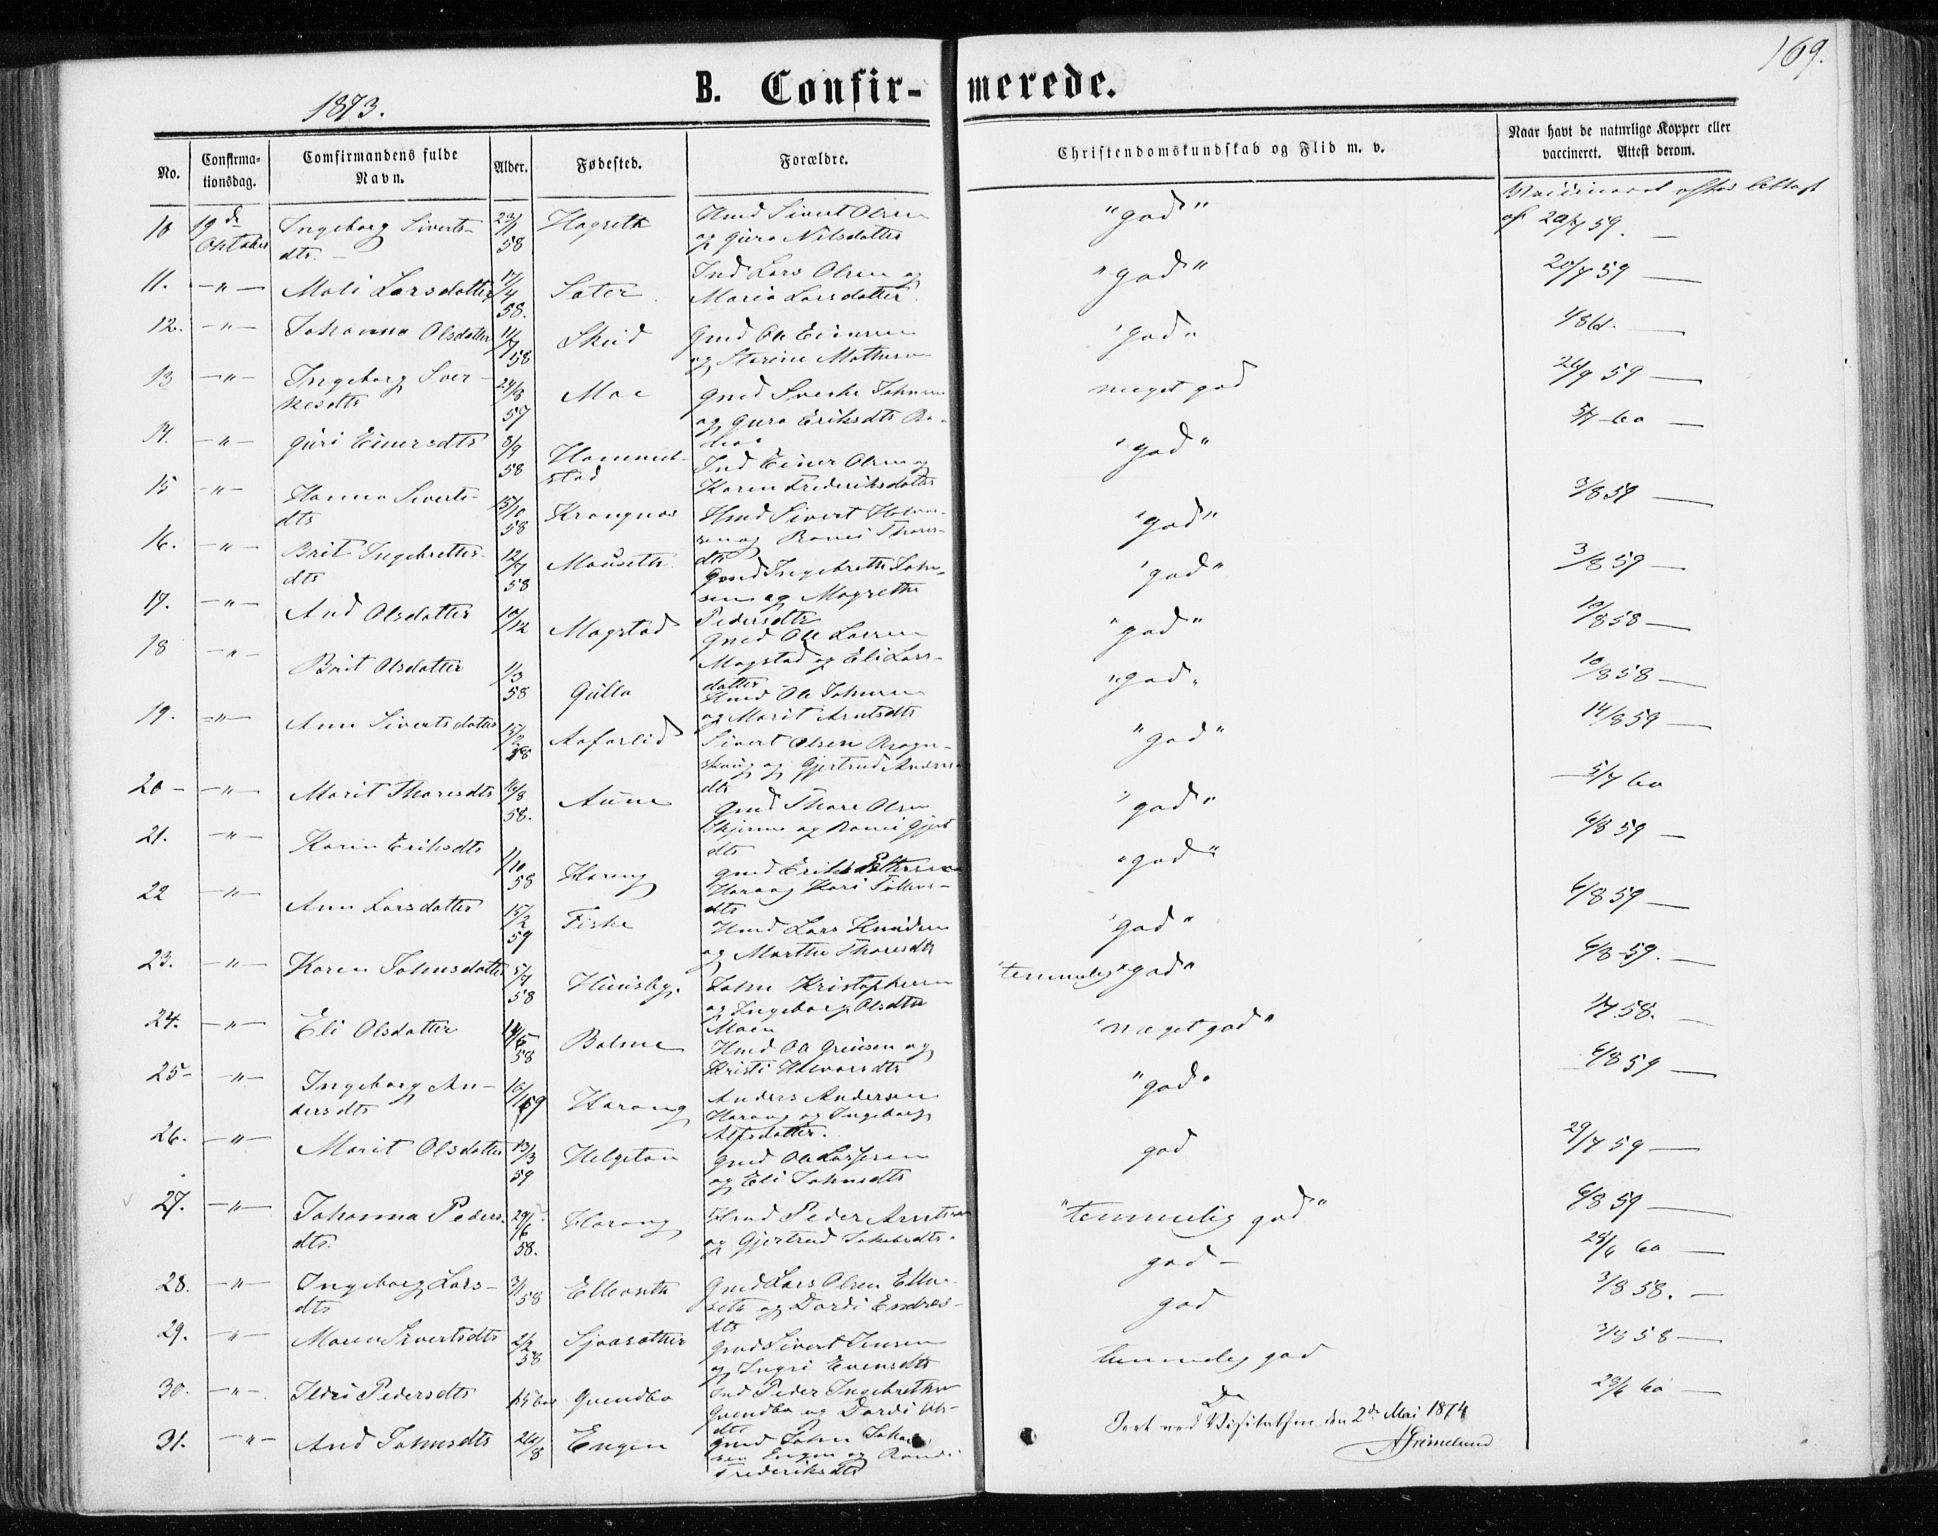 169.
B. Confir- merede.
1873.
No. Confirma-tionsdag. Comfirmandens fulde Navn. Alder. Fødested. Forældre. Christendomskundskab og Flid m. v. Naar havt de naturlige Kopper eller vaccineret. Attest derom.
10 19de Oktober Ingeborg Siverts-dtr. 23/11 58 Hogseth Hmd Sivert Olsen og Guro Nilsdatter "god" Vaccineret af 20/7 59. —
11. —"— Mali Larsdatter 17/4 58. Sæter Ind Lars Olsen og Maria Larsdatter. "god" 20/7 59 —
12. —"— Johanna Olsdatter 11/7 58 Skeid Gmd Ole "god" 61. —
13 —"— Ingeborg Sver-kesdtr 24/8 57 Moe Gmd Sverke Johnsen og Guro Eriksdtr meget god 26/9 59 —
14. —"— Guri Einersdtr 8/9 58 Hammel-stad Ind Einer Olsen og Karen Frederiksdatter "god" 5/7 60 —
15 —"— Hanna Siverts-dtr 15/10 58 Krangnæs Hmd Sivert "god" 3/8 59 —
16. —"— Brit Ingebretts-dtr 12/7 58 Mauseth Gmd Ingebreth John-sen og Magrethe Pedersdtr "god" 3/8 59 —
17. —"— And Olsdatter 10/12 Mogstad Gmd Ole Larsen Mogstad og Eli Lars-datter "god" 10/8 58 —
18 —"— Brit Olsdatter 1/3 58 Gulla Hmd Ole Johnsen og Marit Arntsdtr "god" 10/8 58 —
19. —"— Ann Sivertsdatter 13/2 58 Aafarlid Sivert Olsen og Gjertrud Anders-dtr "god" 14/8 59 —
20 —"— Marit Thoresdtr 16/8 58. Aune Gmd Thore Olsen "god" 5/7 60
21. —"— Karen Eriksdtr 1/10 58 Harang Gmd Erik "god" 6/8 59 —
22 —"— Ann Larsdatter 15/2 59 Fiske Hmd Lars Knudsen og Marthe Thoresdtr "god" 6/8 59 —
23. —"— Karen Johnsdatter 5/7 58 Huusby. John Kristophersen og Ingeborg Olsdtr Moen "temmelig god" 6/8 59. —
24. —"— Eli Olsdatter 14/5 58 Bolme Hmd Ole og Kristi Halvorsdtr "meget god" 1/7 58. —
25 —"— Ingeborg An-dersdtr 16/1 59 Harang Anders Andersen Harang og Ingeborg Alfsdatter. "god" 6/8 59 —
26. —"— Marit Olsdatter 13/3 59 Helgetun Gmd Ole Larssen og Eli Johnsdtr god 29/7 59 —
27. —"— Johanna Peders-dtr. 29/6 58. Harang Hmd Peder Arntsen og Gjertrud Jakobsdtr. "temmelig god" 6/8 59 —
28. —"— Ingeborg Lars-dtr 3/1 58 Elleuseth Gmd Lars Olsen Elleu-seth og Dordi Endres-dtr god — 28/6 60 —
29. —"— Maren Sivertsdtr 2/2 58 Sjøasæther Gmd Sivert Jensen og Ingri Evensdtr god 3/8 58. —
30. —"— Ildri Pedersdtr Qvendbø Ind Peder Ingebrethsen Qvendbø og Dordi Ols-dtr temmelig god 3/8 58 —
31. —"— And Johnsdtr 24/8 Engen Gmd John Johan-sen Engen og Randi Frederiksdtr 28/6 60 —
Seet ved Visitatsen den 2de Mai 1874
AGrimelund